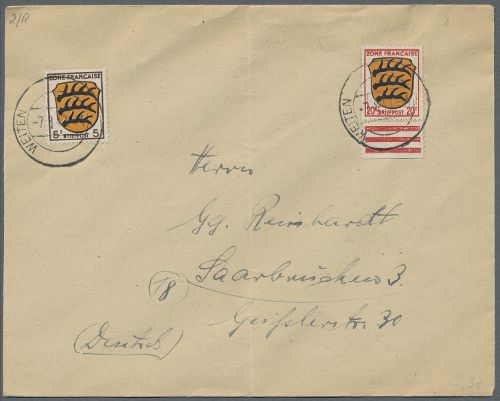 2/R
ZONE FRANCAISE
5 BRIEFPOST 5
WEITEN
-7.8
ZONE FRANCAISE
20 BRIEFPOST 20
WEITEN
Herrn
Gg. Reinhardt
Saarbrücken 3.
18
Geißlerstr. 30
(Deutsch)